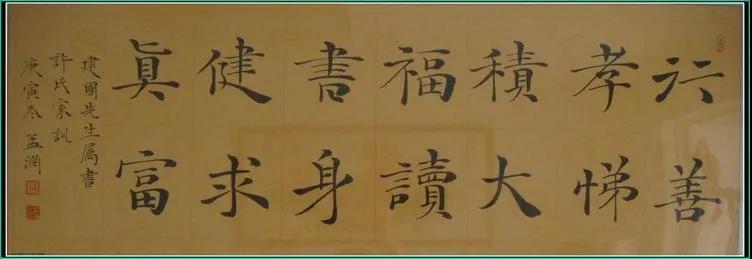 行善
孝悌
積大
福讀
書身
健求
眞富
建國先生属書
許氏家訓
庚寅冬 孟潤